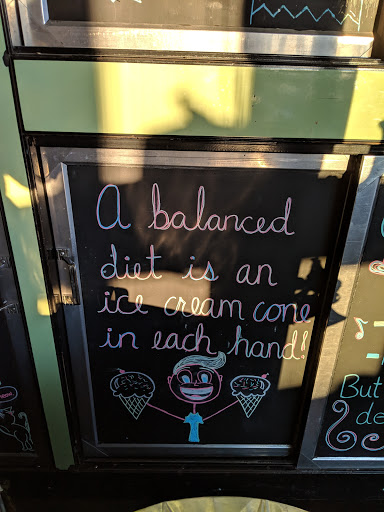 A balanced
diet is an
ice cream cone
in each hand!
But
de